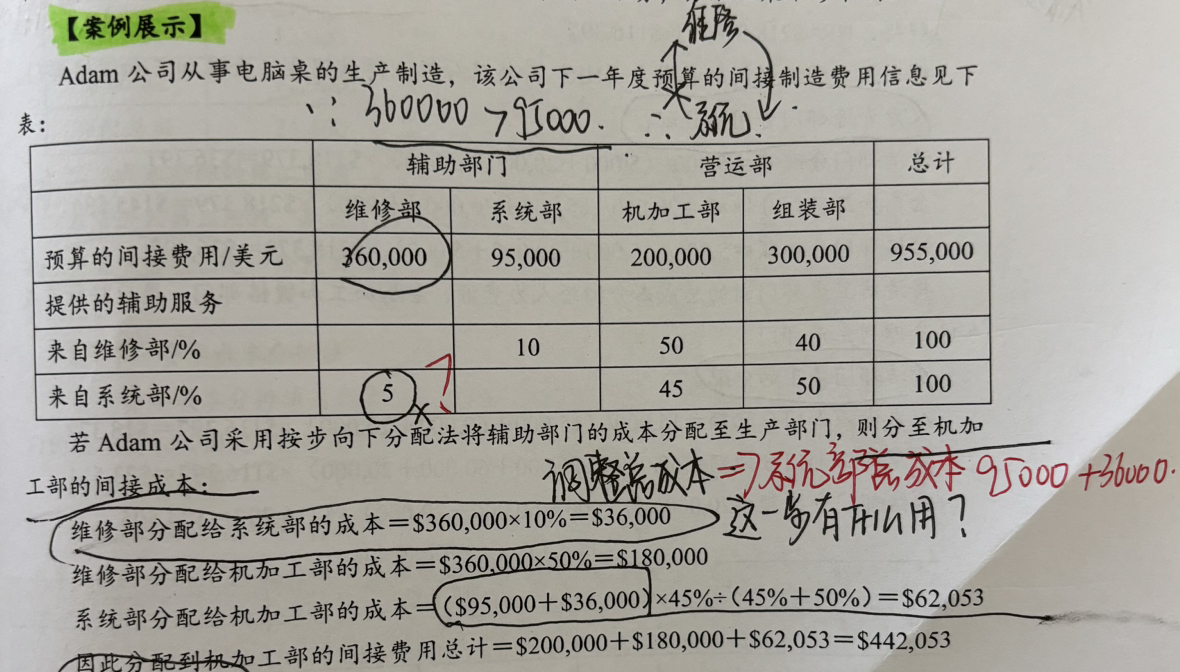 【案例展示】
维修
Adam 公司从事电脑桌的生产制造，该公司下一年度预算的间接制造费用信息见下
∵ 360000 >95000. ∴ 系统.
表：
辅助部门 营运部 总计
维修部 系统部 机加工部 组装部
预算的间接费用/美元 360,000 95,000 200,000 300,000 955,000
提供的辅助服务
来自维修部/% 10 50 40 100
来自系统部/% 5 × ? 45 50 100
若 Adam 公司采用按步向下分配法将辅助部门的成本分配至生产部门，则分至机加
工部的间接成本：
调整总成本=>系统部总成本 95000+36000.
维修部分配给系统部的成本＝$360,000×10%＝$36,000
这一步有什么用？
维修部分配给机加工部的成本＝$360,000×50%＝$180,000
系统部分配给机加工部的成本＝($95,000＋$36,000)×45%÷(45%＋50%)＝$62,053
因此分配到机加工部的间接费用总计＝$200,000＋$180,000＋$62,053＝$442,053